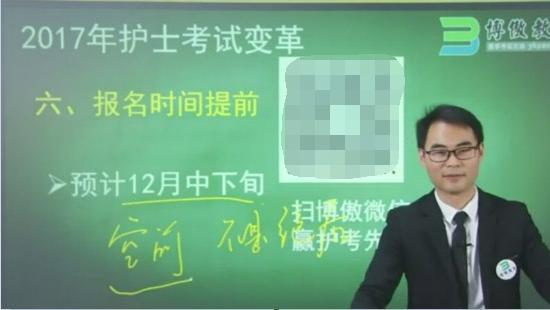 2017年护士考试变革
博傲教
六、报名时间提前
➢预计12月中下旬
扫博傲微信
赢护考先
空前